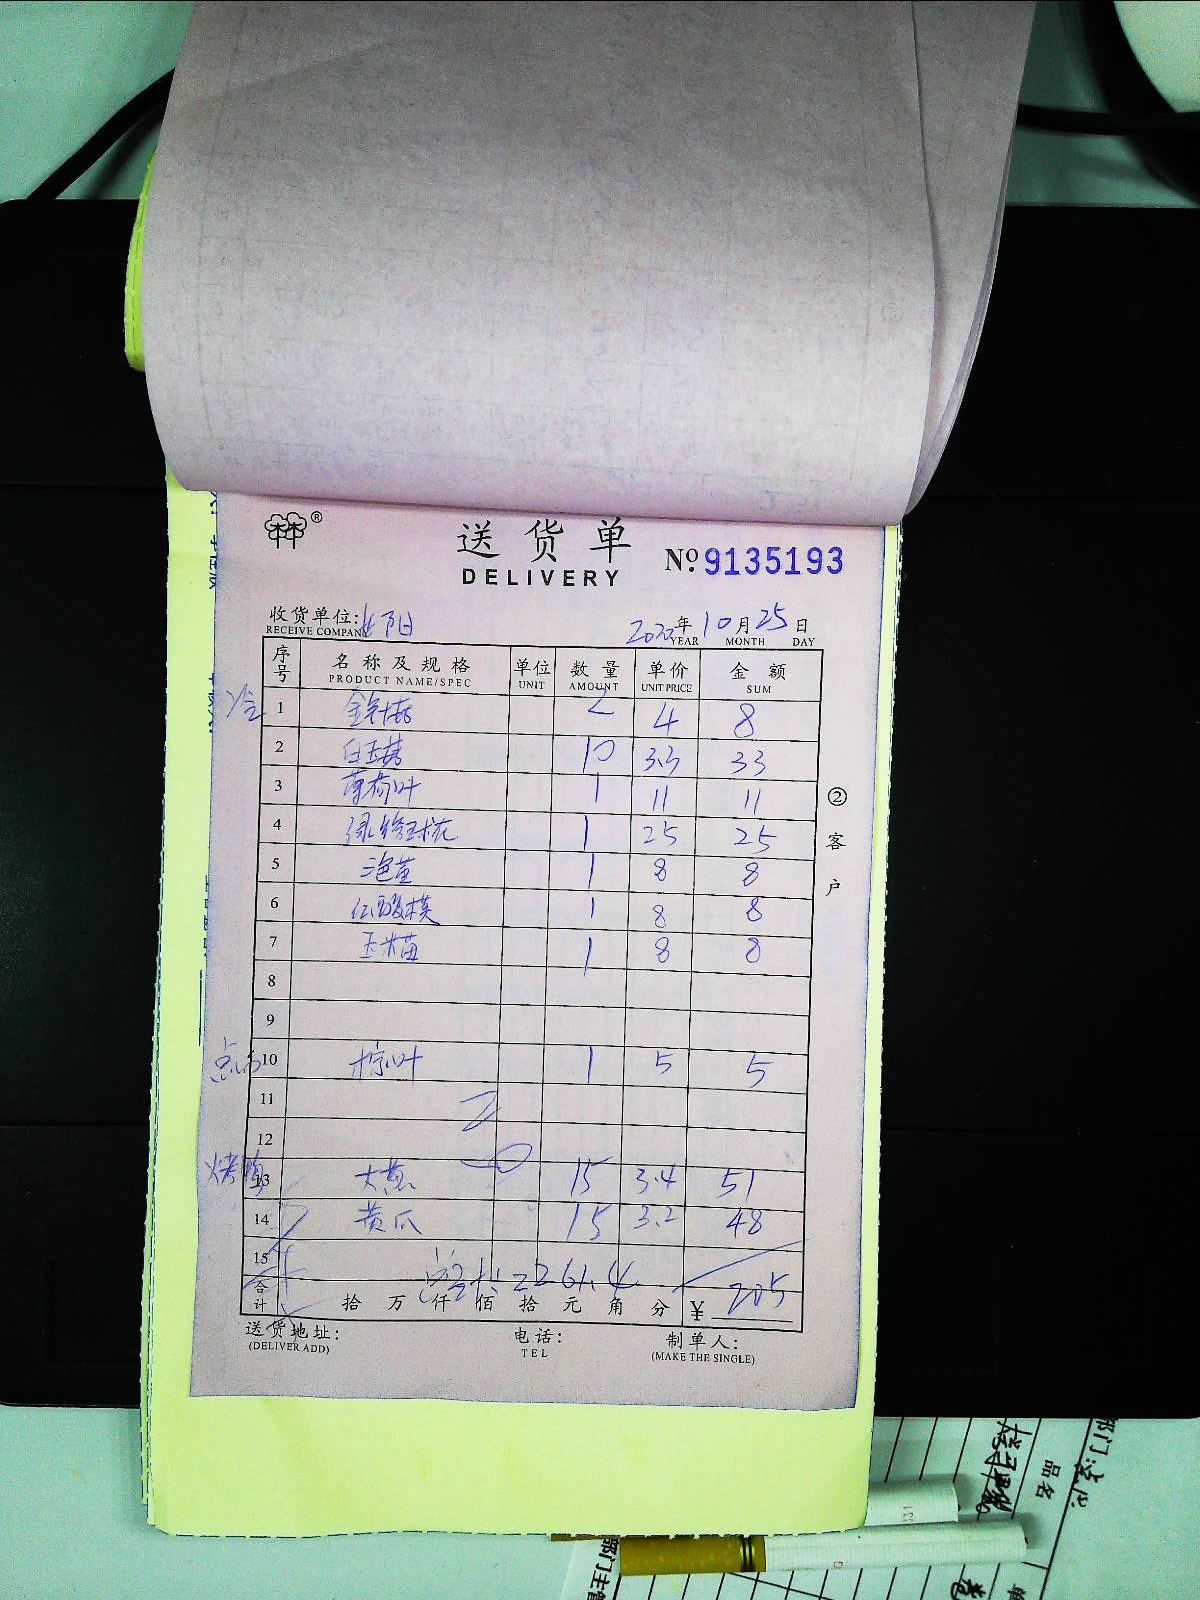 ®
送货单
DELIVERY
No. 9135193
收货单位:
RECEIVE COMPAN
2020年10月25日
YEAR MONTH DAY
序号 名称及规格 单位 数量 单价 金额
PRODUCT NAME/SPEC UNIT AMOUNT UNIT PRICE SUM
冷 1 金针菇 2 4 8
2 白玉菇 10 3.3 33
3 薄荷叶 1 11 11
4 1 25 25
5 1 8 8
6 1 8 8
7 玉米苗 1 8 8
8
9
点 10 柠叶 1 5 5
11
12
烤 13 大葱 15 3.4 51
14 黄瓜 15 3.2 48
15
总计: 2261.4
合计 拾万仟佰拾元角分 ¥ 205
送货地址: 电话: 制单人:
(DELIVER ADD) TEL (MAKE THE SINGLE)
②客户
部门:
品名
部门主管